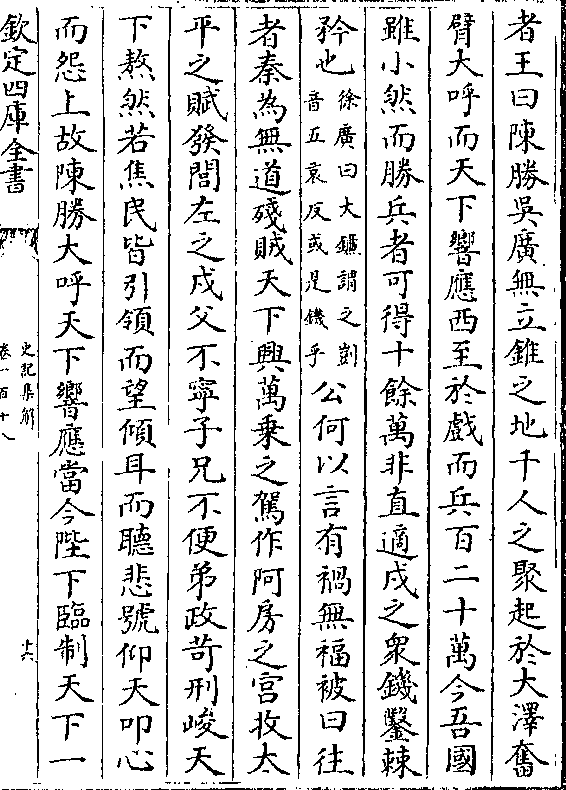 者王曰陳勝吳廣無立錐之地千人之聚起於大澤奮
臂大呼而天下響應西至於戲而兵百二十萬今吾國
雖小然而勝兵者可得十餘萬非直適戍之衆鐖鑿棘
矜也徐廣曰大鐮謂之剴音五哀反或是鐖乎公何以言有禍無福被曰往
者秦為無道殘賊天下興萬乗之駕作阿房之宫收太
平之賦發閭左之戍父不寧子兄不便弟政苛刑峻天
下熬然若焦民皆引領而望傾耳而聽悲號仰天叩心
而怨上故陳勝大呼天下響應當今陛下臨制天下一
欽定四庫全書
史記集解
卷一百十八
十六